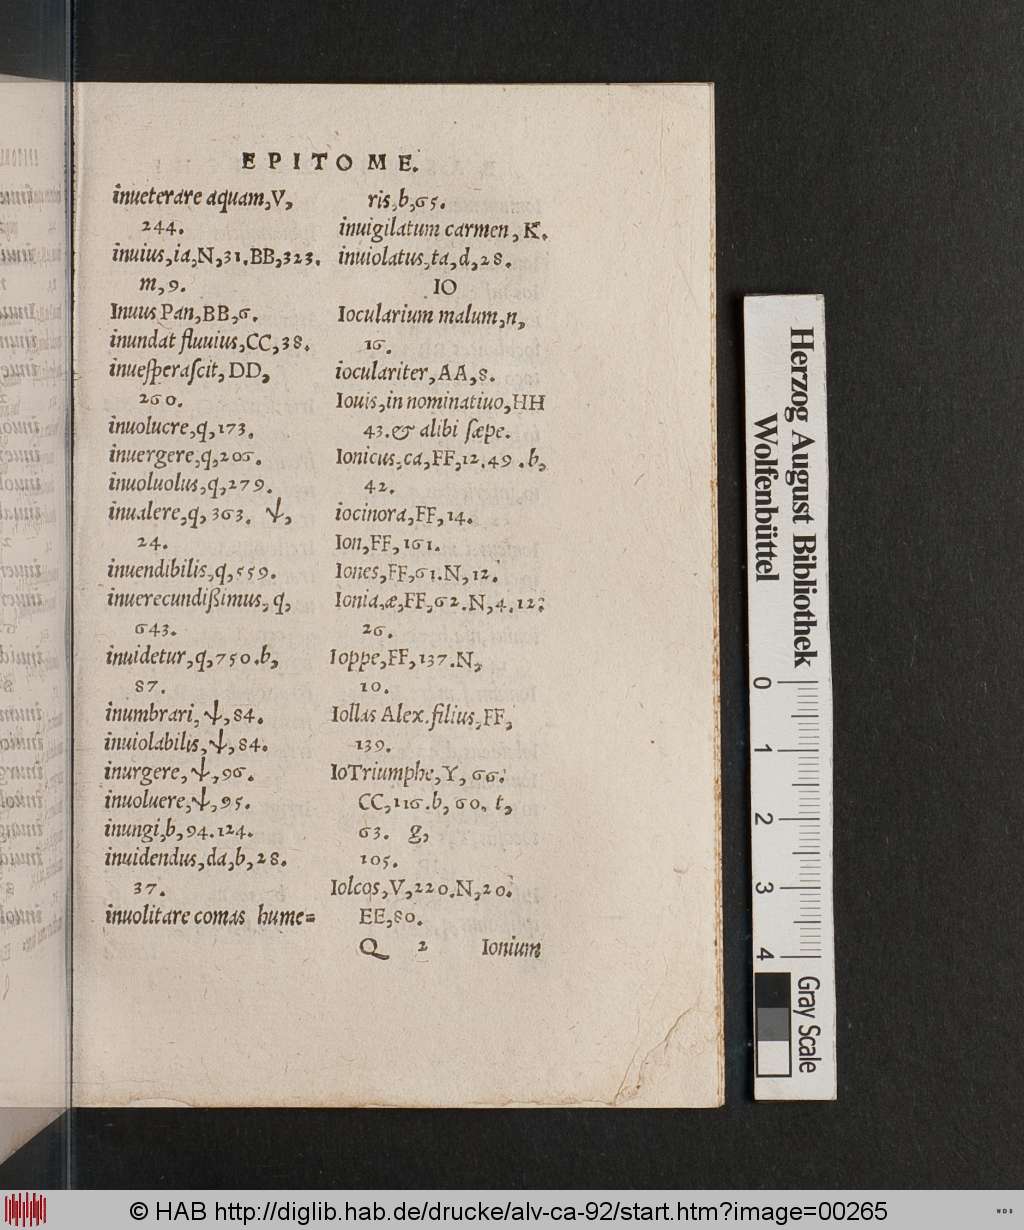 EPITOME.
inueterare aquam,V,
244.
inuius,ia,N,31.BB,323.
m,9.
Inuus Pan,BB,6.
inundat fluuius,CC,38.
inueſperaſcit,DD,
260.
inuolucre,q,173.
inuergere,q,206.
inuoluolus,q,279.
inualere,q,363. ψ,
24.
inuendibilis,q,559.
inuerecundißimus,q,
643.
inuidetur,q,750.b,
87.
inumbrari,ψ,84.
inuiolabilis,ψ,84.
inurgere,ψ,96.
inuoluere,ψ,95.
inungi,b,94.124.
inuidendus,da,b,28.
37.
inuolitare comas hume=
ris,b,65.
inuigilatum carmen,K.
inuiolatus,ta,d,28.
IO
Iocularium malum,n,
16.
ioculariter,AA,8.
Iouis,in nominatiuo,HH
43.& alibi ſæpe.
Ionicus,ca,FF,12.49.b,
42.
iocinora,FF,14.
Ion,FF,161.
Iones,FF,61.N,12.
Ionia,æ,FF,62.N,4.12.
26.
Ioppe,FF,137.N,
10.
Iollas Alex.filius,FF,
139.
Io Triumphe,Y,66.
CC,116.b,60. t,
63. g,
105.
Iolcos,V,220.N,20.
EE,80.
Q 2 Ionium
Herzog August Bibliothek
Wolfenbüttel
0 1 2 3 4
Gray Scale
© HAB http://diglib.hab.de/drucke/alv-ca-92/start.htm?image=00265